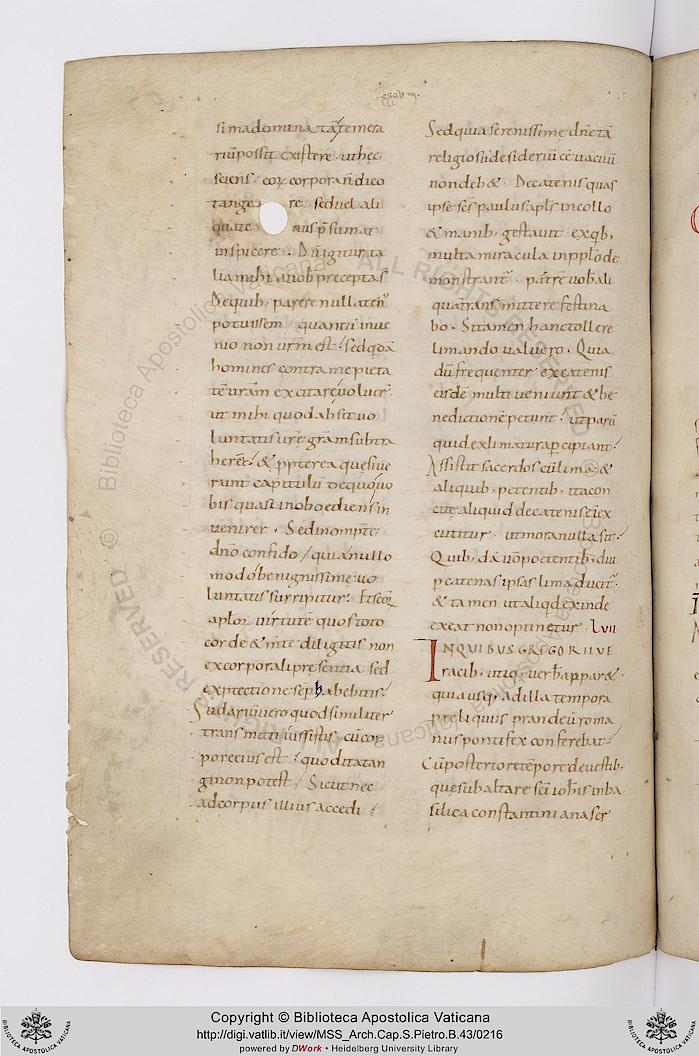 simadomina tam temera
riū possit existere. ut hec
sciens. eoꝝ corpora ñ dico
tangere. sed vel ali
quate nus p̄sumat
inspicere. Dū igitur ta
lia mihi a uob preceptas
De quib; parere nullaten'
potuissem, quantū inue
nio non urm̄ est; sed qdā
homines contra me pieta
tē urām excitare uoluer
ut mihi quod absit uo
luntatis ure grām subtra
herēt; & ppterea quesiue
runt capitulū de quo uo
bis quasi inoboediens in
venirer. Sed in ompīe
dnō confido, quia nullo
modo benignissime uo
luntatis surripitur. Et scōꝝ
aploꝝ virtute quos toto
corde & mīte diligitis non
ex corporali presentia sed
ex ptectione sēp habebitis;
Sudariū uero quod similiter
transmitti iussistis cū cor
pore eius est. quod ita tan
gi non potest, Sicut nec
ad corpus illius accedi;
Sed quia serenissime dnē tā
religiosū desideriū eē vacuū
non deb&. De catenis quas
ipse scs̄ paulus apls̄ in collo
& manib; gestauit. ex qb;
multa miracula in pplō de
monstrant. partē uobis ali
quā transmittere festina
bo. Si tamen hanc tollere
limando ualuero. Quia
dū frequenter ex catenis
eisdē multi ueniunt & be
nedictionē petunt; ut parū
quid ex limatura pcipiant;
Assistit sacerdos cū lima &
aliquib; petentib; ita con
cite aliquid de catenis ex
cutitur. ut mora nulla sit;
Quib;dā uō poetentib; diu
p catenas ipsas lima ducit'
& tamen ut aliqd exinde
exeat non optinetur. lvii
IN QUIBUS GREGORII VE
racib; utiq; uerb apparæ
quia usq; ad illa tempora
p reliquiis prandeū roma
nus pontifex conferebat;
Cū posteriore tēpore de uestib;
que sub altare scī iohīs in ba
silica constantiniana ser
Copyright © Biblioteca Apostolica Vaticana
http://digi.vatlib.it/view/MSS_Arch.Cap.S.Pietro.B.43/0216
powered by DWork • Heidelberg University Library